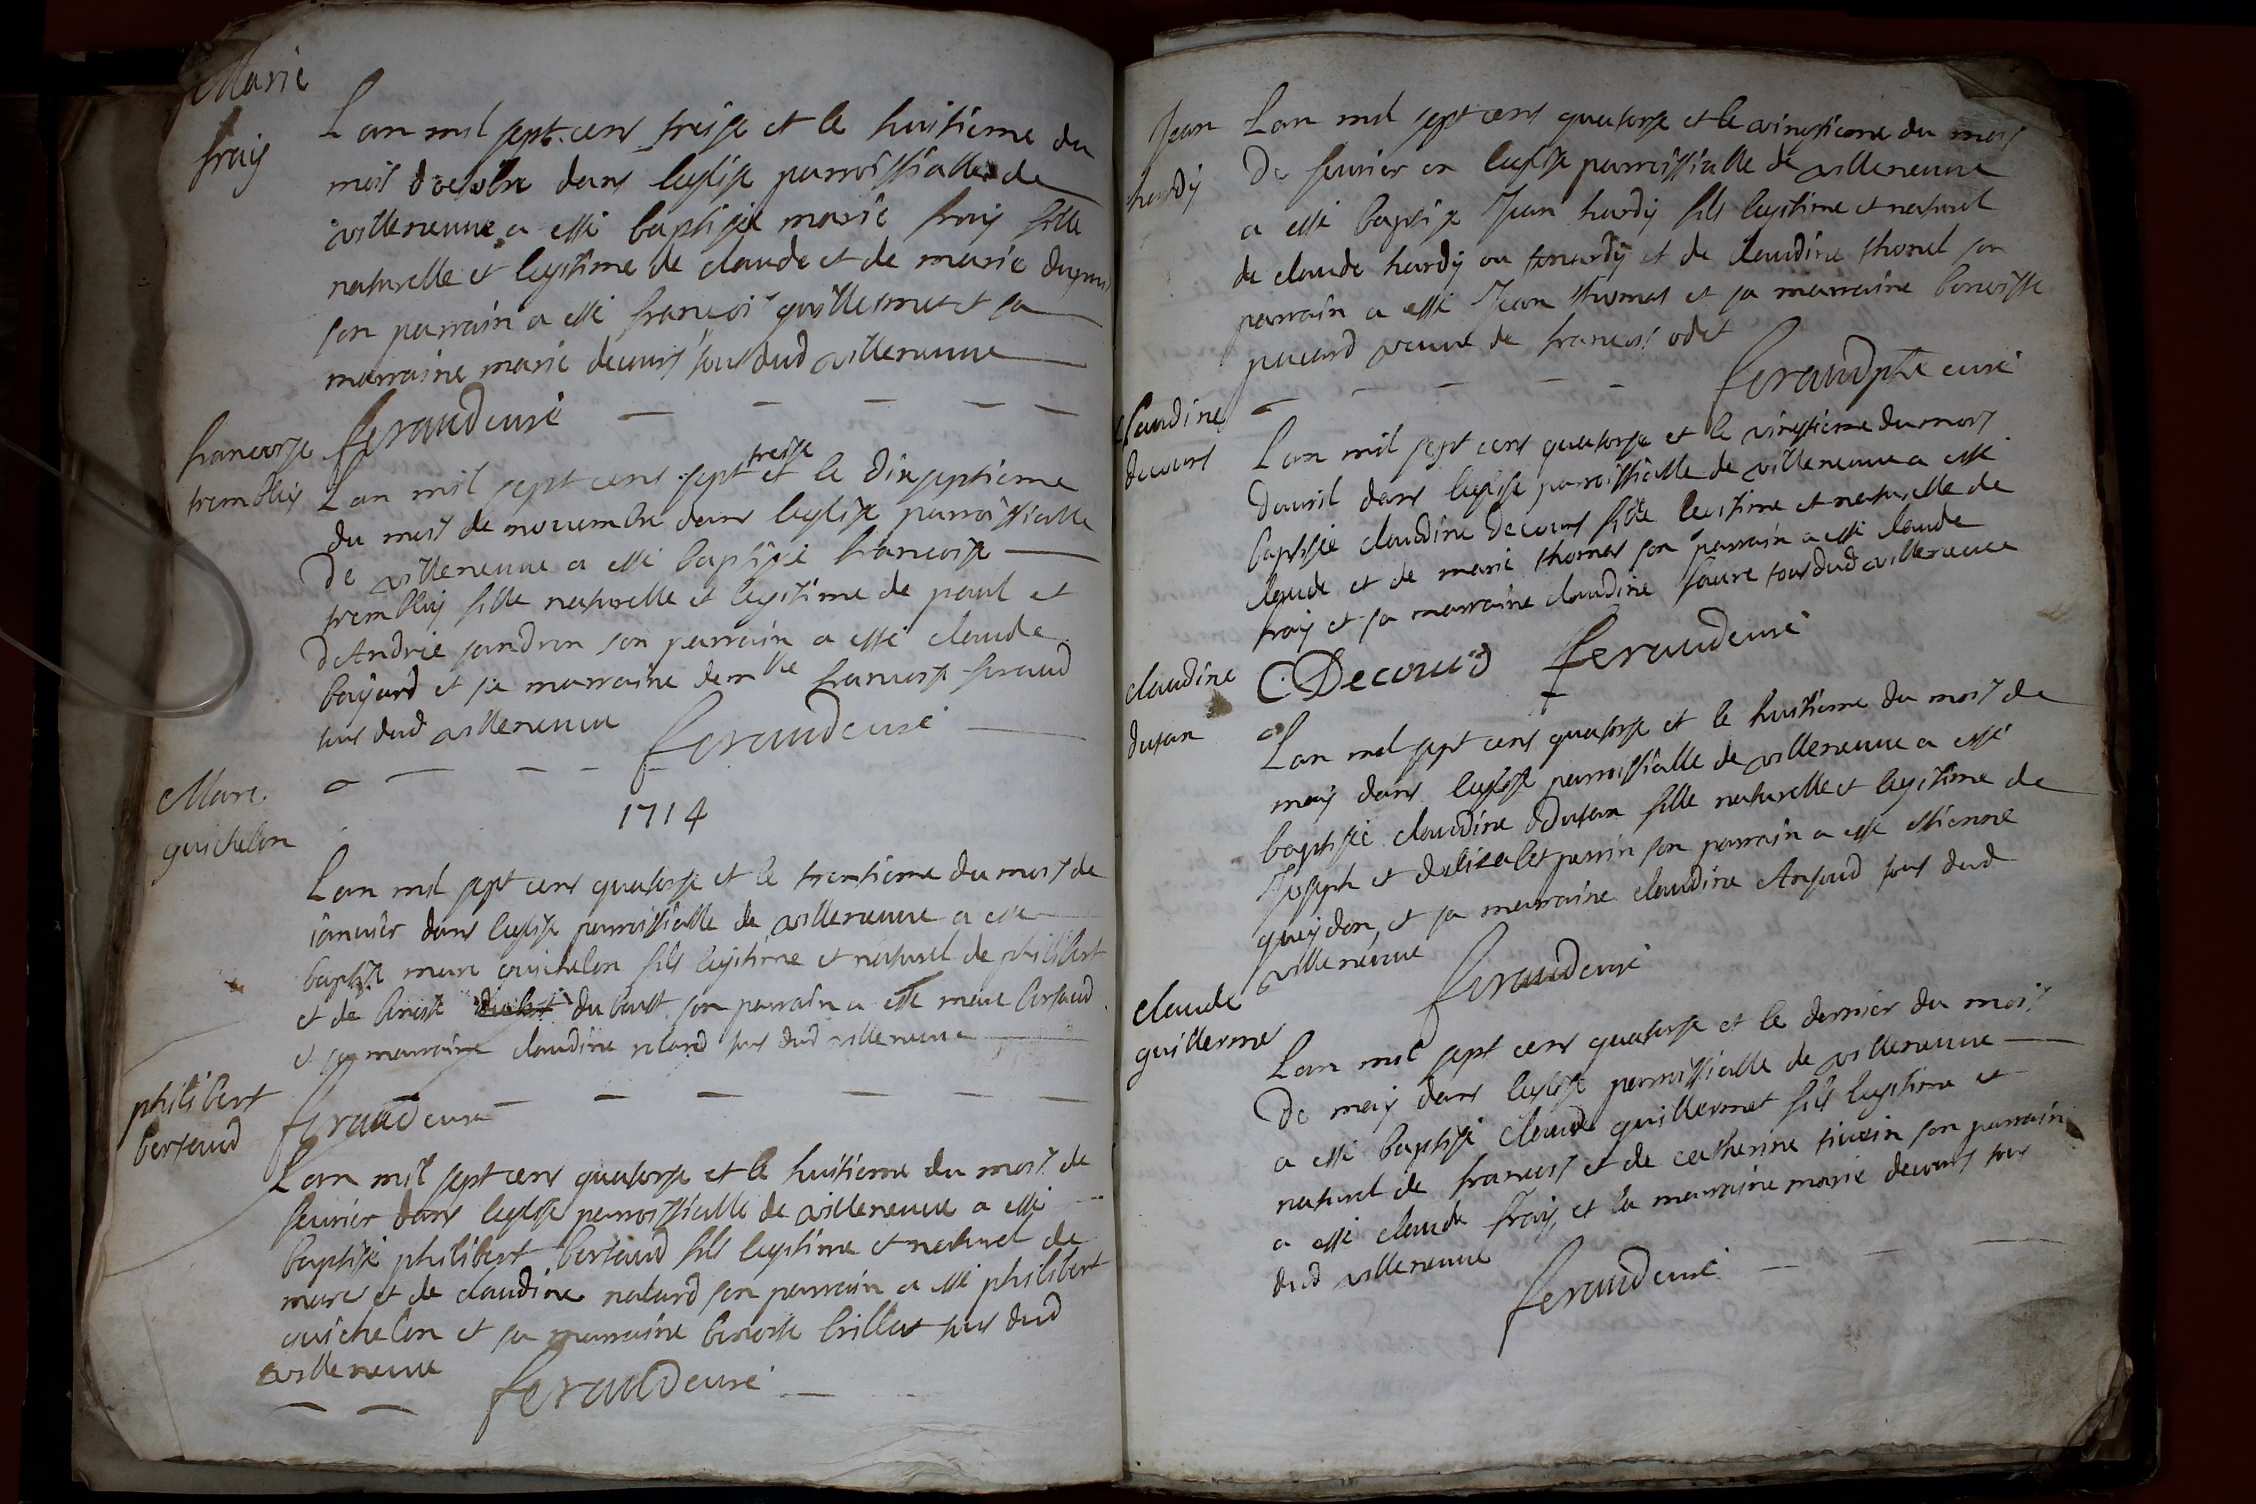 Marie
fraij
Lan mil sept cens treise et le huitieme du
mois doctobre dans leglise parroissialle de
villeneuve a esté baptisée marie fraij fille
naturelle et legitime de claude et de marie dupuis
son parrain a esté francois guillermet et sa
marraine marie decours tous dud villeneuve
feraud curé
francoise
trembley
Lan mil sept cens sept treise et le dixseptieme
du mois de novembre dans leglise parroissialle
de villeneuve a esté baptisée francoise
trembley fille naturelle et legitime de paul et
dAndrée jandron son parrain a esté claude
bayard et sa marraine demlle francoise feraud
tous dud villeneuve feraud curé
1714
Marc
guichelon
Lan mil sept cens quatorse et le trentieme du mois de
ianvier dans leglise parroissialle de villeneuve a esté
baptisé marc guichelon fils legitime et naturel de philibert
et de benoiste dubost son parrain a esté marc bertaud
et sa marraine claudine nolard tous dud villeneuve
feraud curé
philibert
bertaud
Lan mil sept cens quatorse et le huitieme du mois de
fevrier dans leglise parroissialle de villeneuve a esté
baptisé philibert bertaud fils legitime et naturel de
marc et de claudine nolard son parrain a esté philibert
guichelon et sa marraine benoiste brillat tous dud
villeneuve feraud curé
Jean
hardij
Lan mil sept cens quatorse et le vingtieme du mois
de fevrier en leglise parroissialle de villeneuve
a esté baptisé Jean hardij fils legitime et naturel
de claude hardij ou tenardij et de claudine thorel son
parrain a esté Jean thomas et sa marraine benoiste
pacard veuve de francois odet
feraud ptre curé
Claudine
decours
Lan mil sept cens quatorse et le vingtieme du mois
davril dans leglise parroissialle de villeneuve a esté
baptisée claudine decours fille legitime et naturelle de
claude et de marie thomas son parrain a esté claude
fraij et sa marraine claudine faure tous dud villeneuve
C Decours feraud curé
claudine
dutan
Lan mil sept cens quatorse et le huitieme du mois de
maij dans leglise parroissialle de villeneuve a esté
baptisée claudine dutan fille naturelle et legitime de
Joseph et delizabet perrin son parrain a esté estienne
queijdon, et sa marraine claudine Ansaud tous dud
villeneuve feraud curé
claude
guillermet
Lan mil sept cens quatorse et le dernier du mois
de maij dans leglise parroissialle de villeneuve
a esté baptisé claude guillermet fils legitime et
naturel de francois et de catherine tivein son parrain
a esté claude fraij, et la marraine marie decours tous
dud villeneuve feraud curé